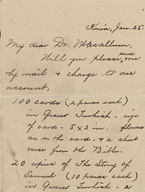 Konia, Jan. 25
My dear Dr. MacCallum,
Will you please send me
by mail & charge to our
account,
100 cards (2 paras each)
in Greco Turkish. size
of card - 5 x 3 in. flowers
on the card - & a short
verse from the Bible.
20 copies of The Story of
Samuel (10 paras each)
in Greco Turkish - a